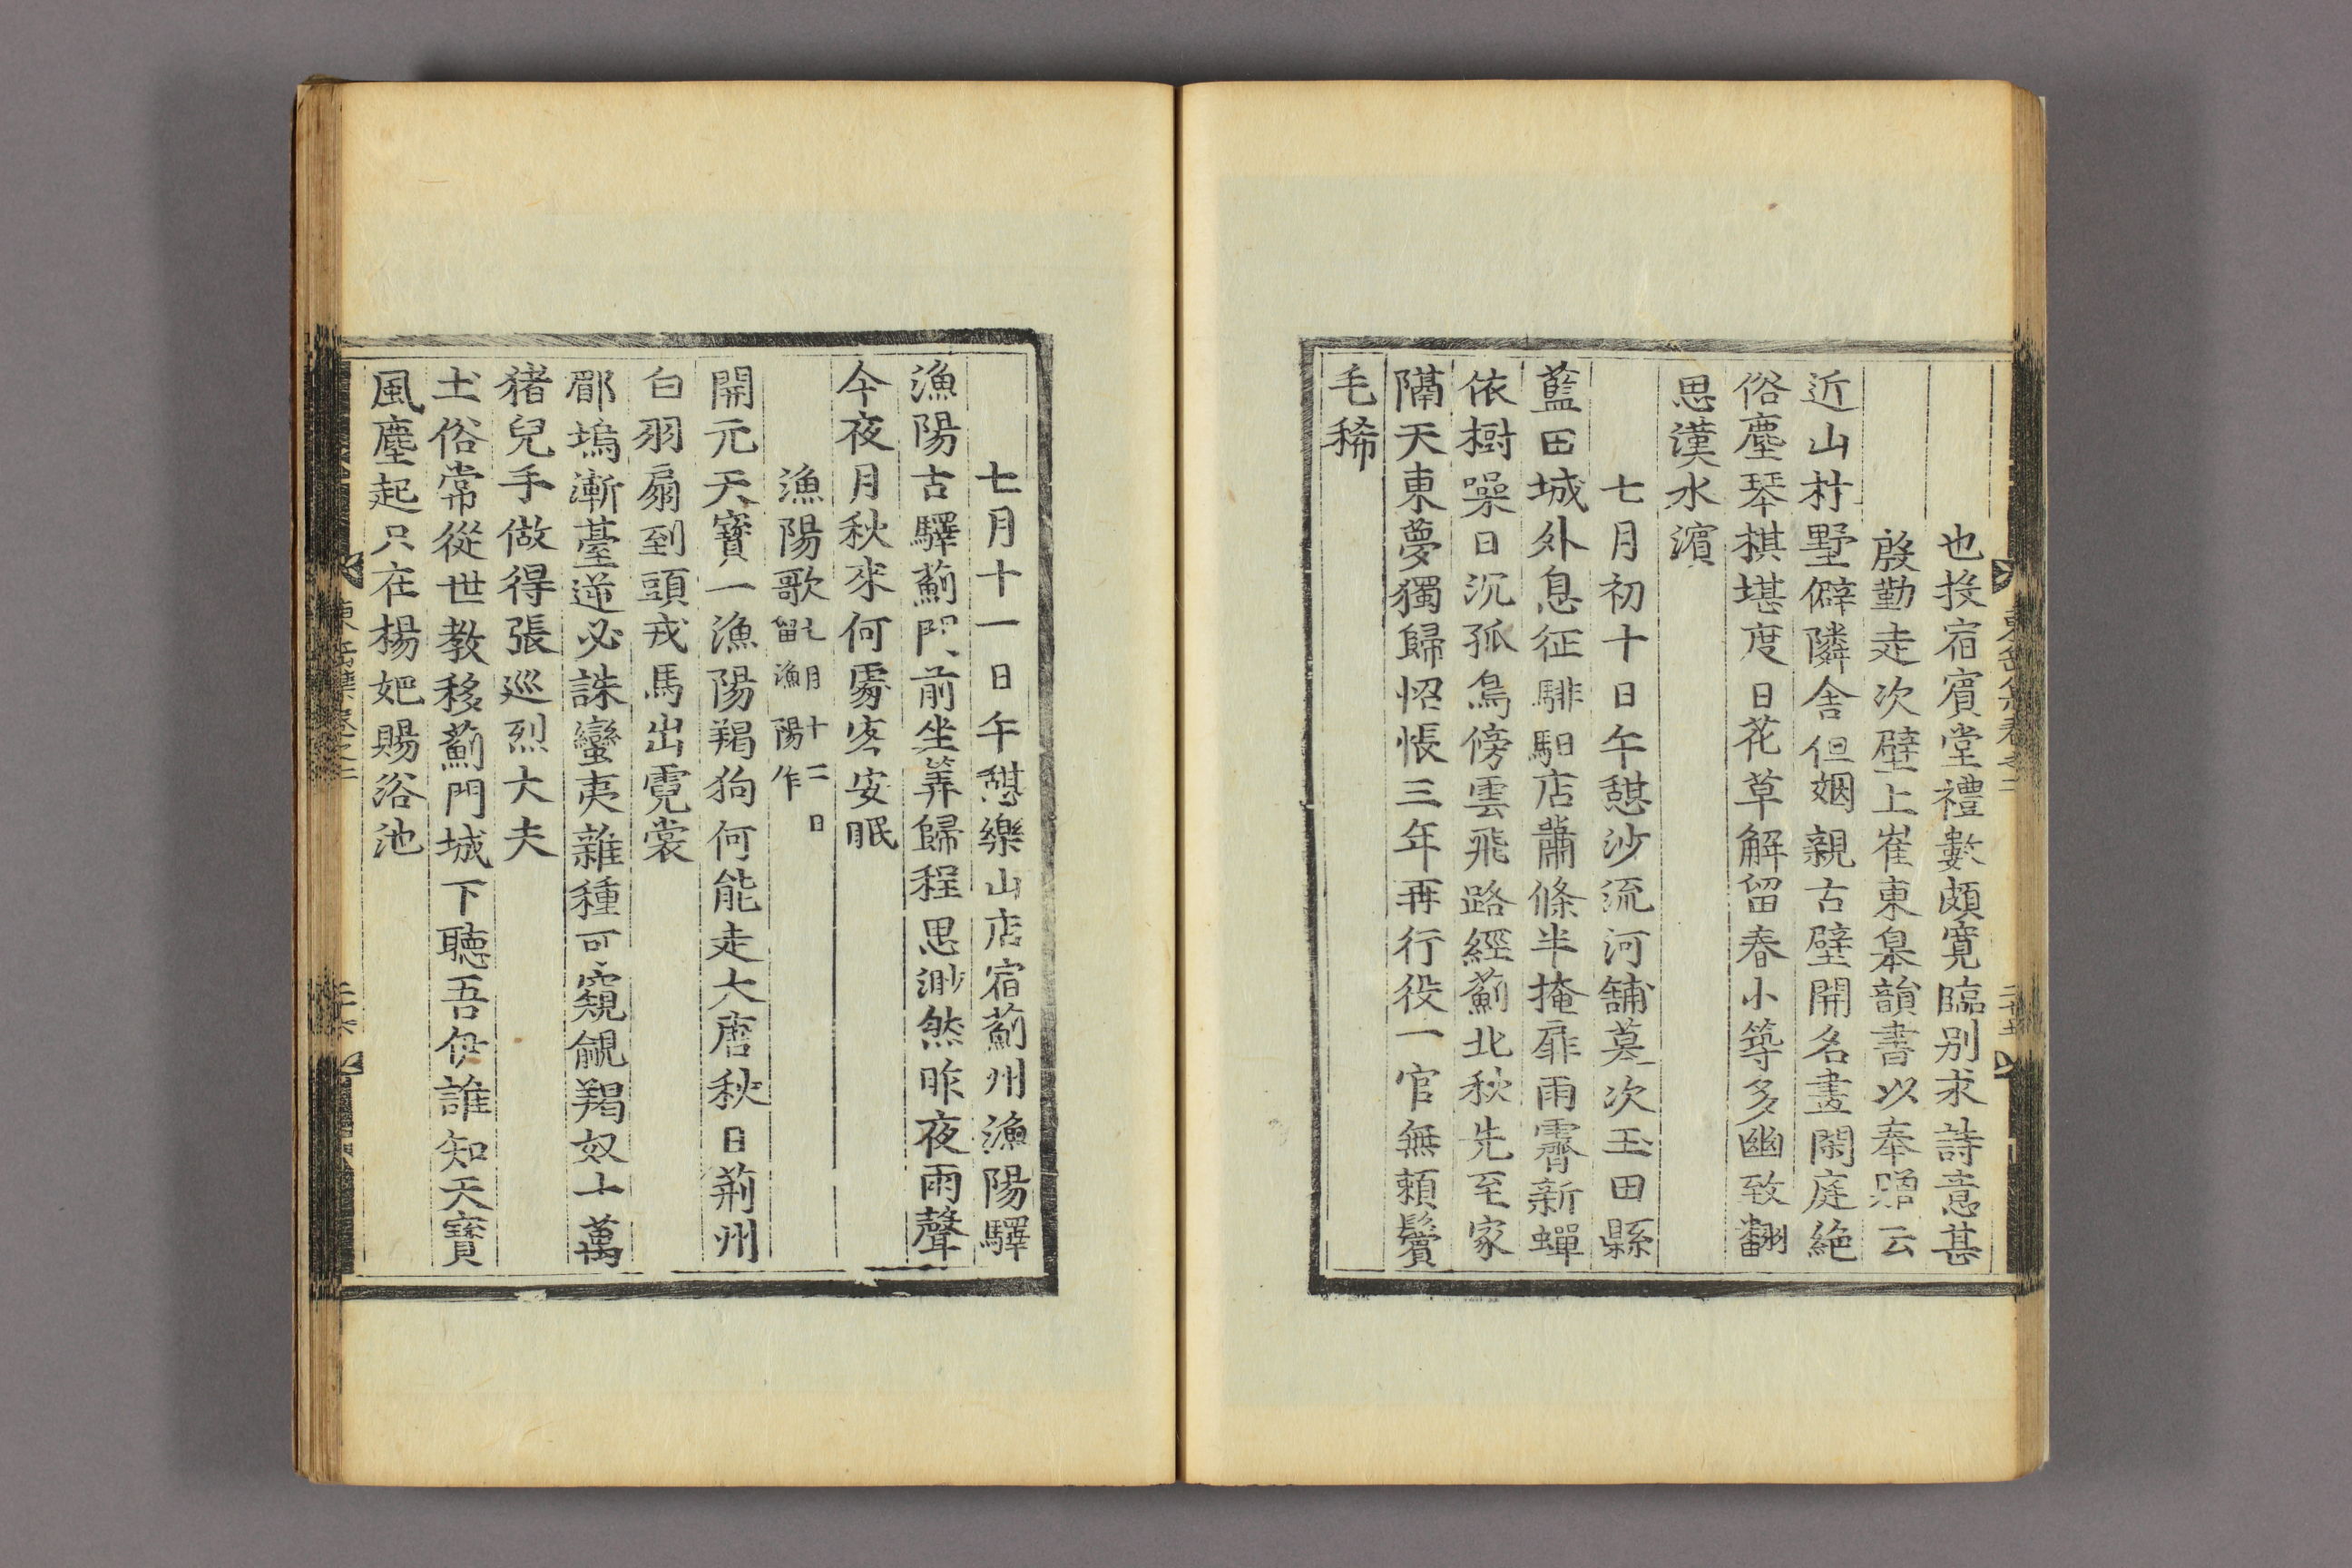 也投宿賓堂禮數頗寬臨別求詩意甚
殷勤走次壁上崔東皐韻書以奉贈云
近山村墅僻隣舍但姻親古壁開名畫閑庭絶
俗塵琴棋堪度日花草解留春小築多幽致翻
思漢水濱
七月初十日午憇沙流河舖暮次玉田縣
藍田城外息征騑駬店蕭條半掩扉雨霽新蟬
依樹噪日沉孤鳥傍雲飛路經薊北秋先至家
隔天東夢獨歸怊悵三年再行役一官無賴鬢
毛稀
七月十一日午憇樂山店宿薊州漁陽驛
漁陽古驛薊門前坐筭歸程思渺然昨夜雨聲
今夜月秋來何處客安眠
漁陽歌七月十二日留漁陽作
開元天寶一漁陽羯狗何能走大唐秋日荊州
白羽扇到頭戎馬出霓裳
郿塢漸臺逆必誅蠻夷雜種可窺覦羯奴十萬
猪兒手做得張巡烈大夫
土俗常從世教移薊門城下聽吾伊誰知天寶
風塵起只在楊妃賜浴池